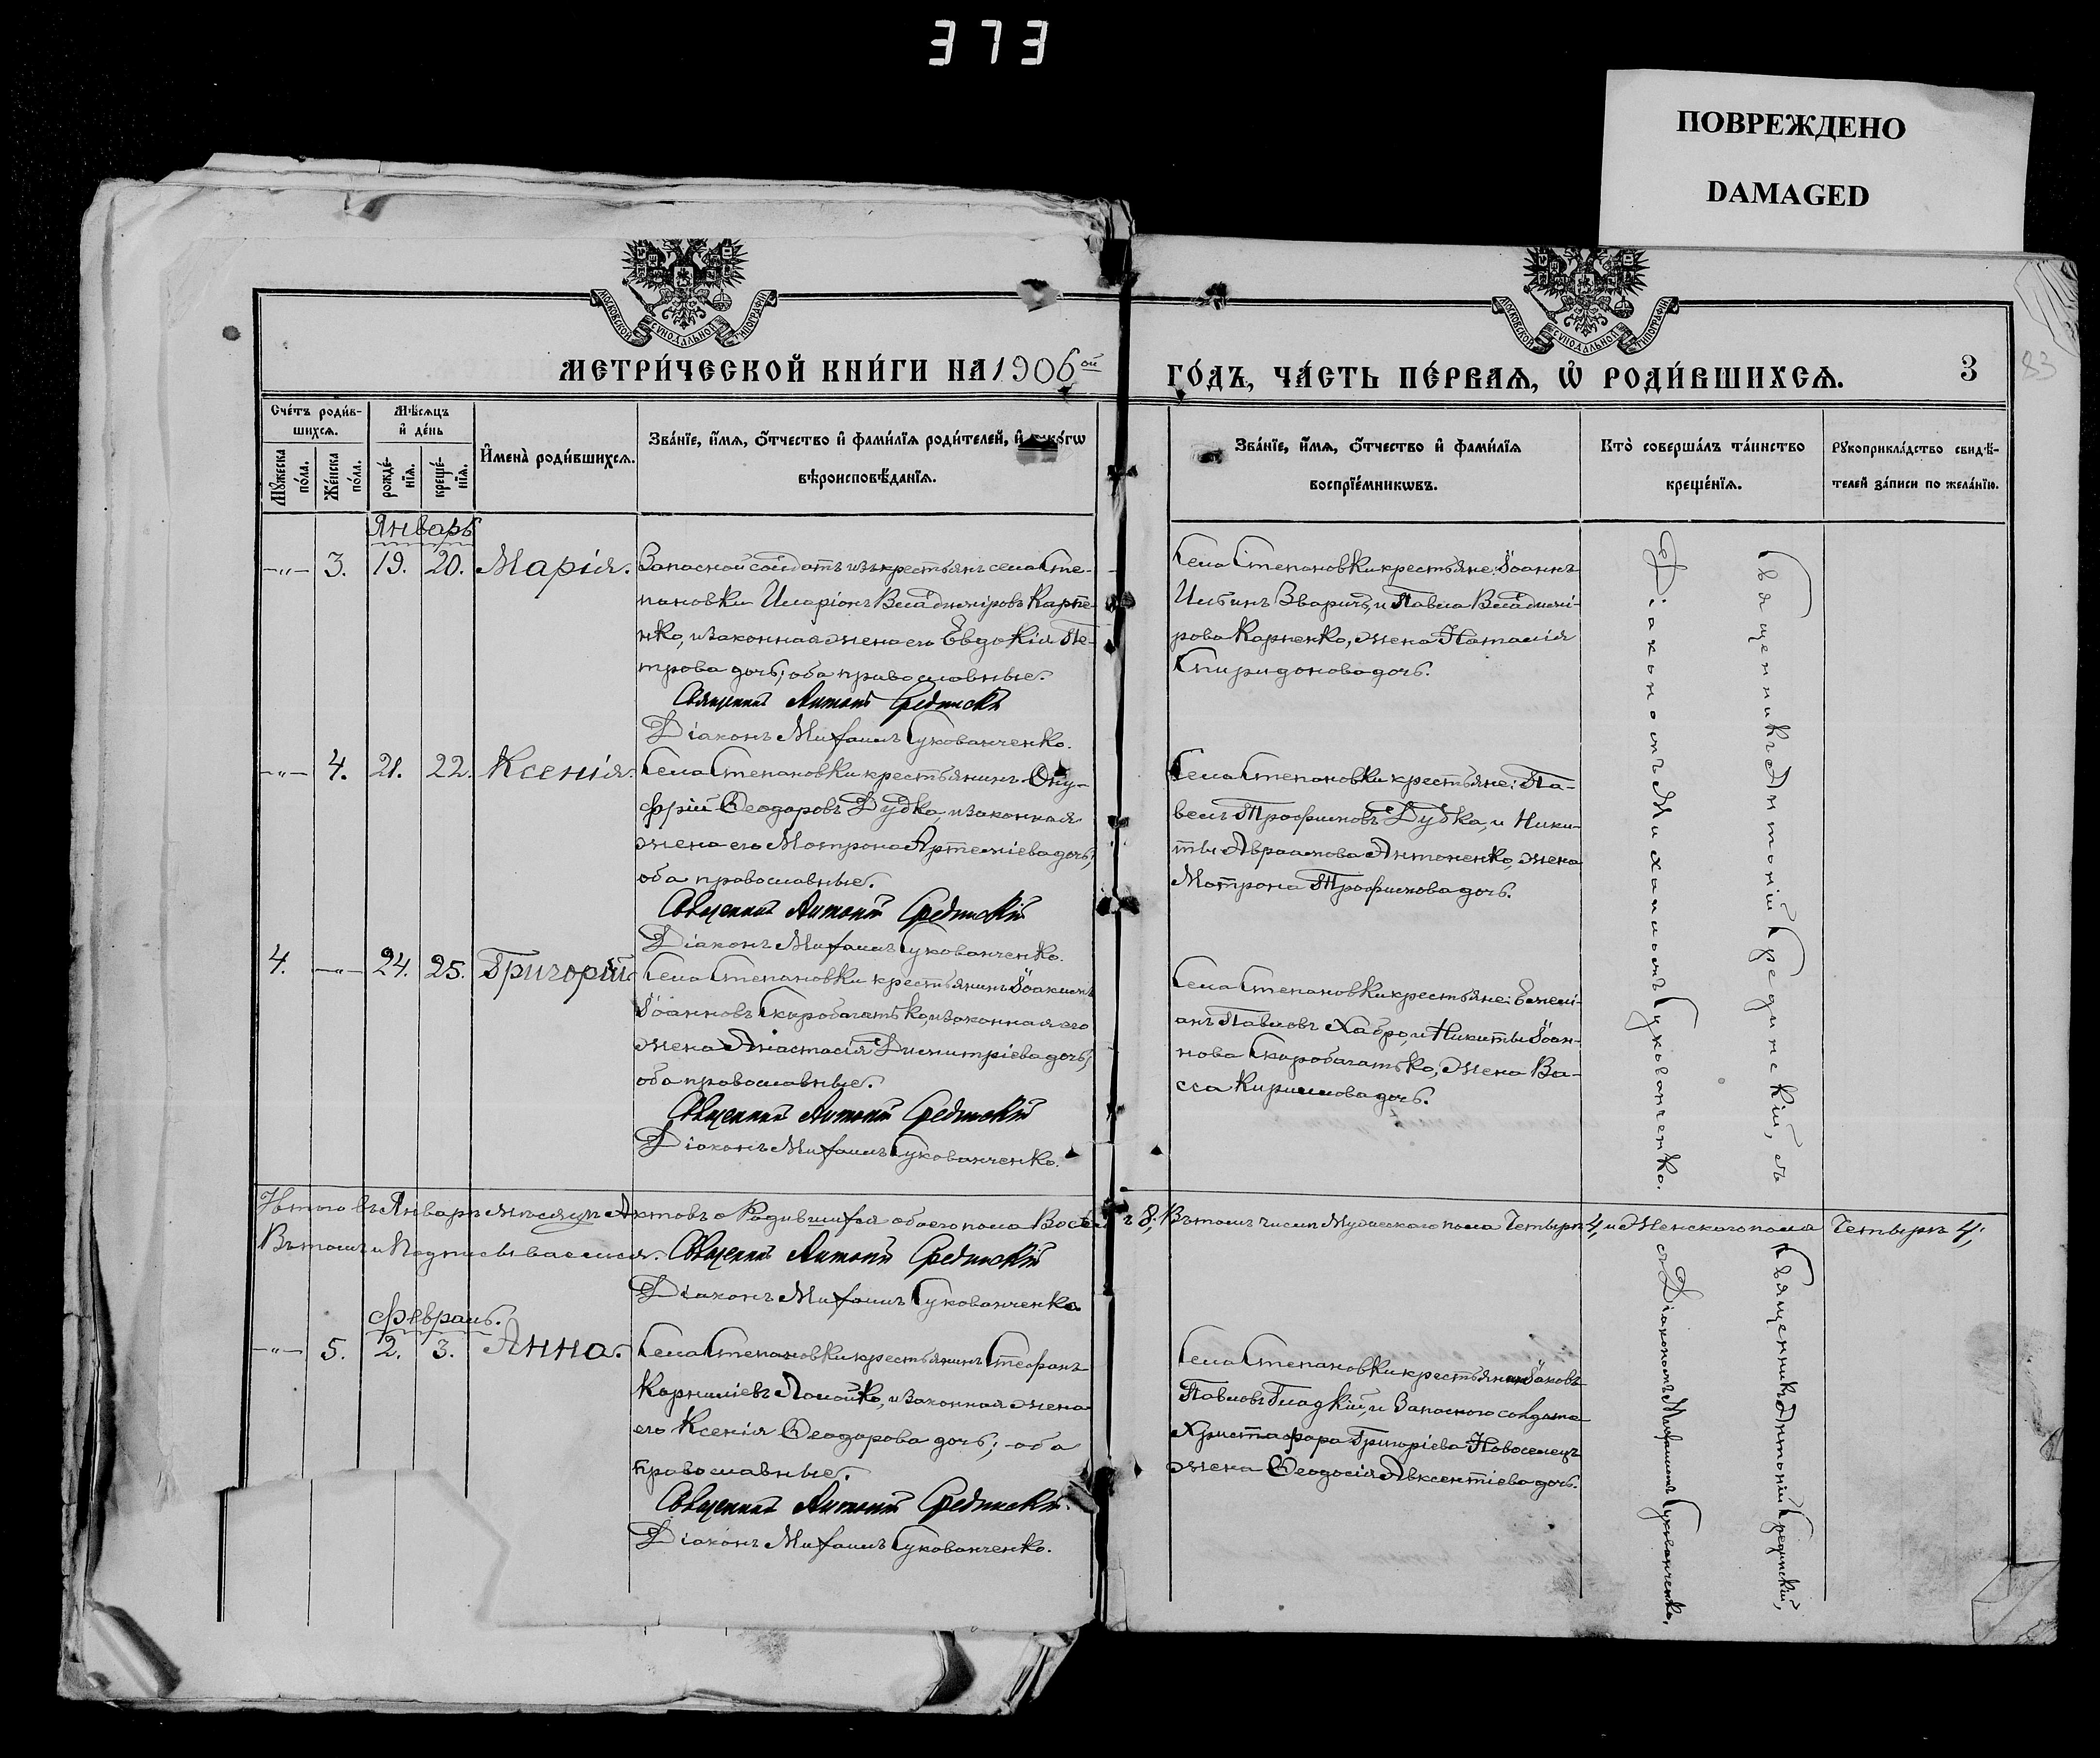 373
ПОВРЕЖДЕНО
DAMAGED
МОСКОВСКОЙ СѴНОДАЛЬНОЙ ТИПОГРАФІИ
МОСКОВСКОЙ СѴНОДАЛЬНОЙ ТИПОГРАФІИ
МЕТРИ́ЧЕСКОЙ КНИ́ГИ НА 1906ой
ГО́ДЪ, ЧА́СТЬ ПЕ́РВАѦ, Ѡ҆ РОДИ́ВШИХСѦ.
3
83
Сче́тъ роди́в-
шихсѧ.
Мѣ́сѧцъ
и҆ де́нь
Мꙋ́жеска
по́ла.
Же́нска
по́ла.
рожде́-
нїѧ.
креще́-
нїѧ.
И҆мена̀ роди́вшихсѧ.
Зва́нїе, и҆́мѧ, ѻ҆́тчество и҆ фами́лїѧ роди́телей, и҆
вѣроисповѣ́данїѧ.
Зва́нїе, и҆́мѧ, ѻ҆́тчество и҆ фами́лїѧ
воспрїе́мникѡвъ.
Кто̀ соверша́лъ та́инство
креще́нїѧ.
Рꙋкоприкла́дство свидѣ́-
телей за́писи по жела́нїю.
Январь
-"- 3. 19. 20. Марія.
Запасной солдатъ изъ крестьянъ села Сте-
пановки Иларіонъ Владиміровъ Карпе-
нко, и законная жена его Евдокія Пе-
трова дочь; оба православные.
Священникъ Антоній Срединскій
Діаконъ Михаилъ Сукованченко.
Села Степановки крестьяне: Іоаннъ
Ильинъ Зваричъ, и Павла Владимі-
рова Карпенко, жена Наталія
Спиридонова дочь.
-"- 4. 21. 22. Ксенія.
Села Степановки крестьянинъ Ону-
фрій Ѳеодоровъ Дудка, и законная
жена его Мотрона Артеміева дочь;
оба православные.
Священникъ Антоній Срединскій
Діаконъ Михаилъ Сукованченко.
Села Степановки крестьяне: Па-
велъ Трофимовъ Дудка, и Ники-
ты Авраамова Антоненко, жена
Мотрона Трофимова дочь.
4. -"- 24. 25. Григорій
Села Степановки крестьянинъ Іоакимъ
Іоанновъ Скоробагатько, и законная его
жена Анастасія Димитріева дочь;
оба православные.
Священникъ Антоній Срединскій
Діаконъ Михаилъ Сукованченко.
Села Степановки крестьяне: Емелі-
анъ Павловъ Хабро, и Никиты Іоан-
нова Скоробагатько, жена Ва-
сса Кирилова дочь.
Священникъ Антоній Срединскій, съ
Діакономъ Михаиломъ Сукованченко.
Итого въ Январѣ мѣсяцѣ Актовъ о Родившихся обоего пола Восемь 8; Въ томъ числѣ Мужескаго пола Четыре 4, и Женского пола Четыре 4;
Въ томъ и Подписываемся. Священникъ Антоній Срединскій
Діаконъ Михаилъ Сукованченко
Февраль.
-"- 5. 2. 3. Анна.
Села Степановки крестьянинъ Стефанъ
Корниліевъ Ломойко, и законная жена
его Ксенія Ѳеодорова дочь; оба
православные.
Священникъ Антоній Срединскій.
Діаконъ Михаилъ Сукованченко.
Села Степановки крестьянинъ Іаковъ
Павловъ Гладкій, и Запасного солдата
Христофора Григоріева Новоселецъ
жена Ѳеодосія Авксентіева дочь.
Священникъ Антоній Срединскій,
съ Діакономъ Михаиломъ Сукованченко,